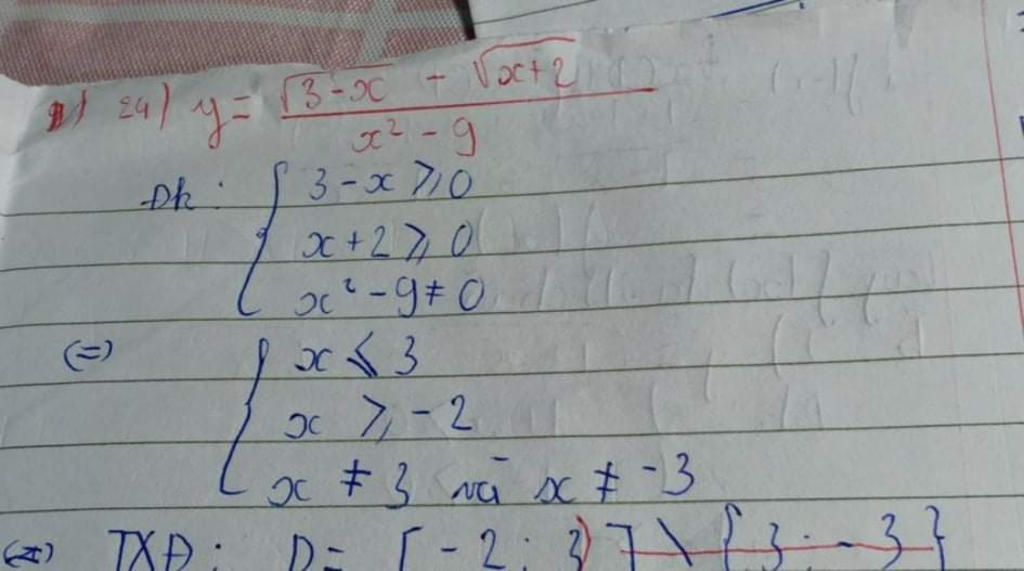 24) y = (√(3-x) - √(x+2)) / (x² - 9)
Đk: { 3 - x ≥ 0
x + 2 ≥ 0
x² - 9 ≠ 0
(=) { x ≤ 3
x ≥ -2
x ≠ 3 và x ≠ -3
TXĐ: D = [-2; 3) ] \ {3; -3}